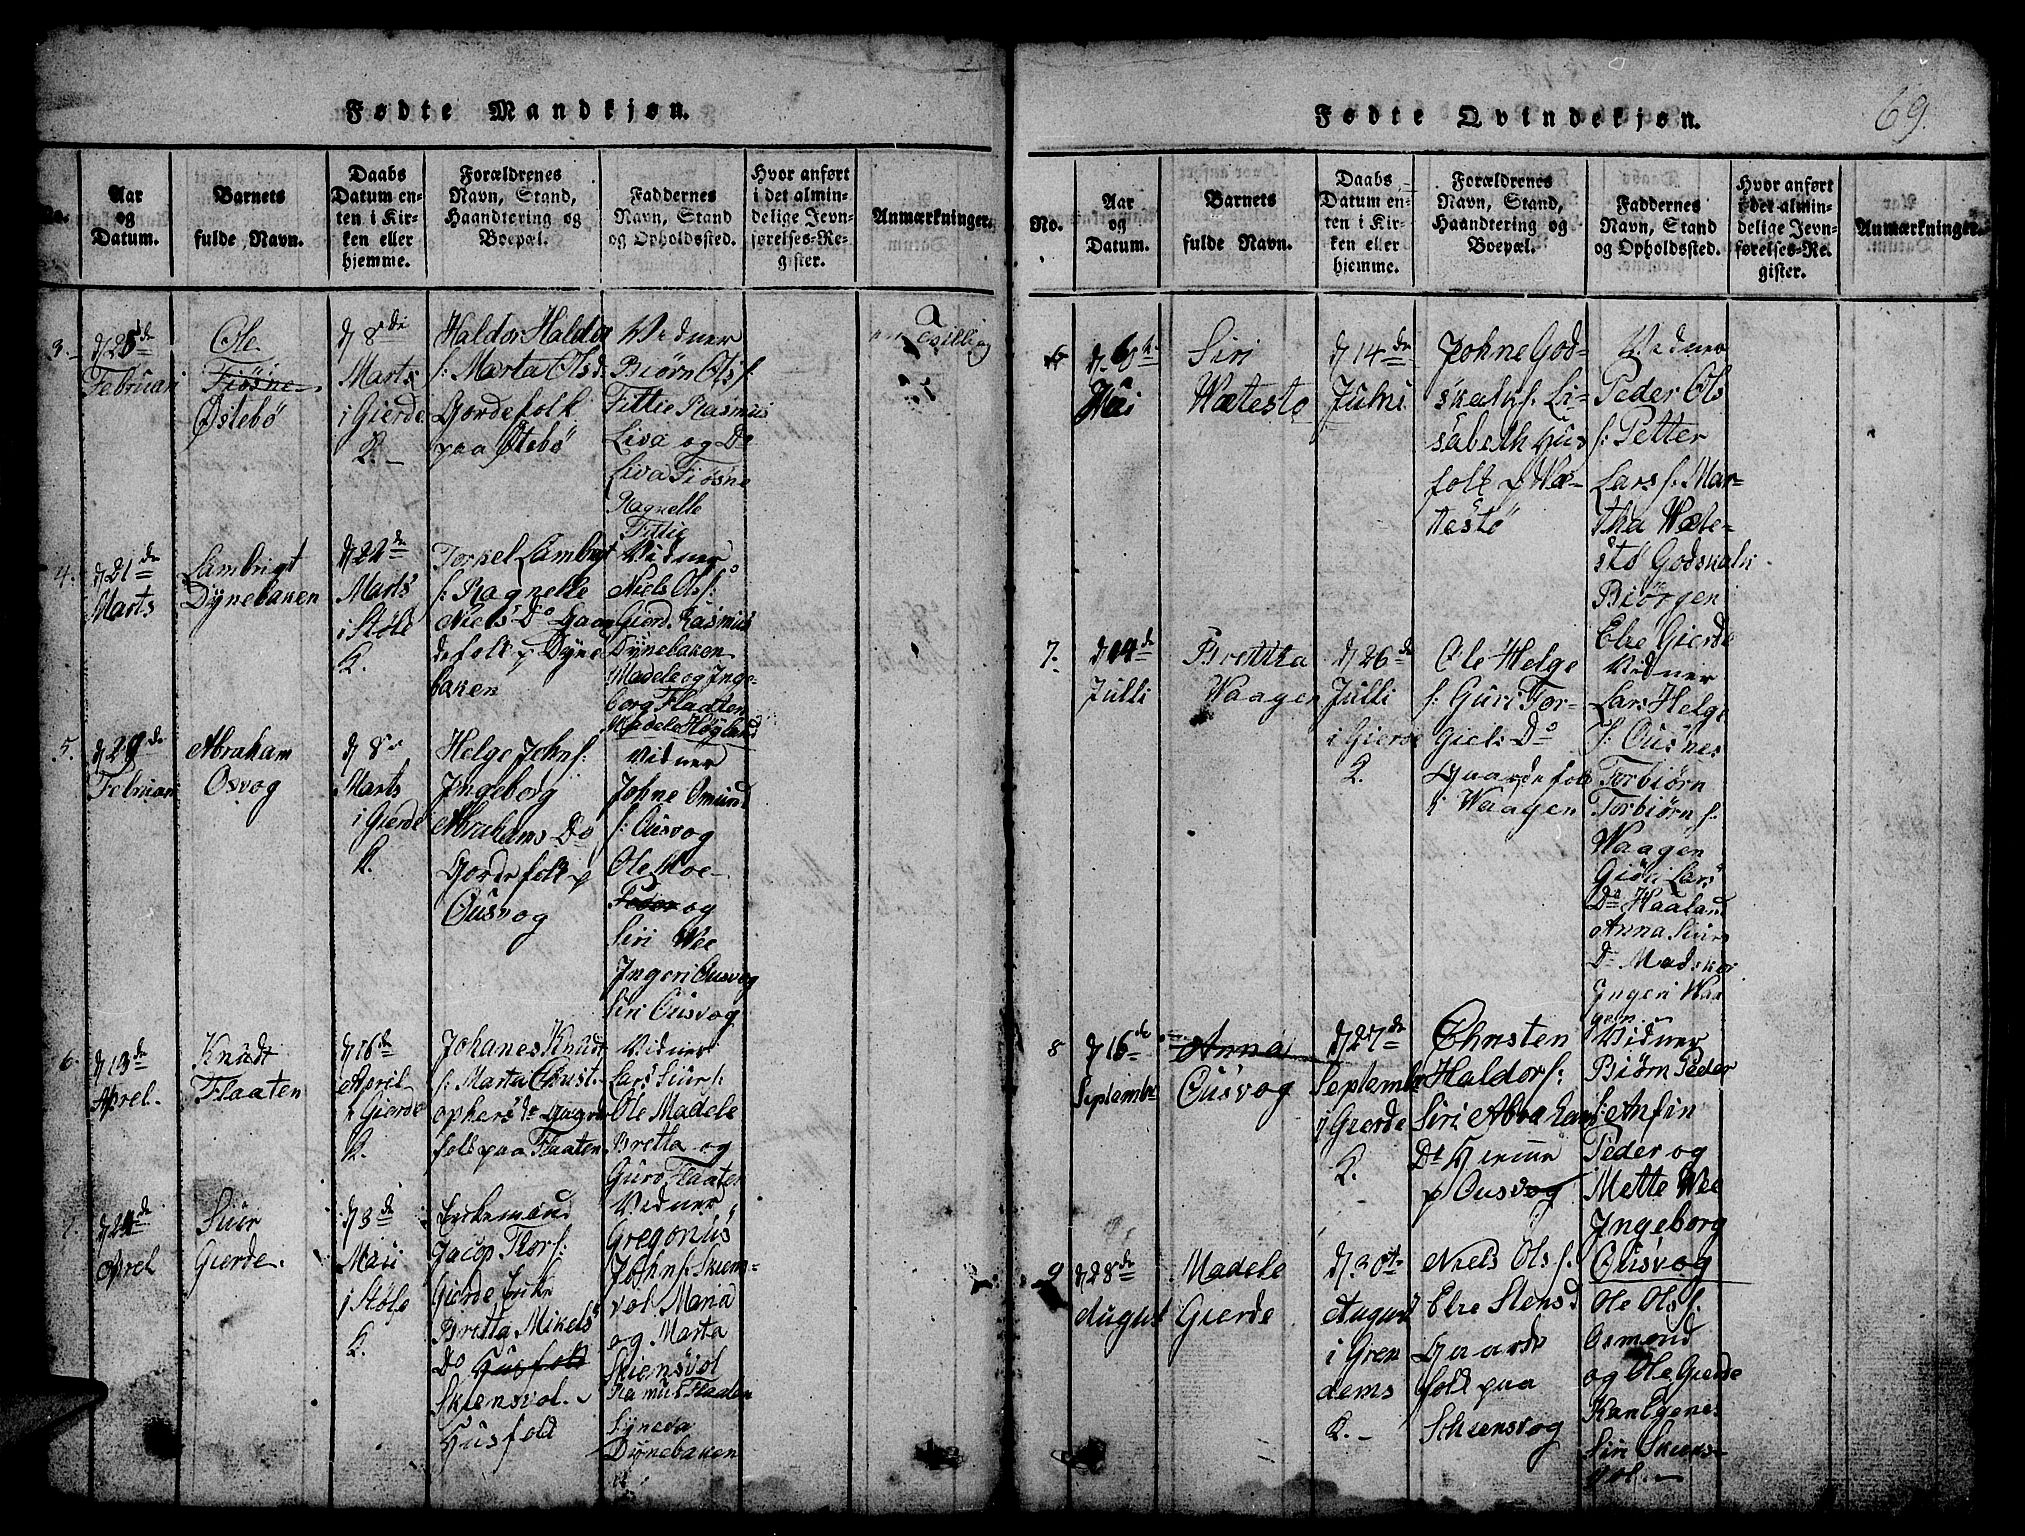 Fødte Mandkjøn.
No.
Aar
og
Datum.
Barnets
fulde Navn.
Daabs
Datum en-
ten i Kir-
ken eller
hjemme.
Forældrenes
Navn, Stand,
Haandtering og
Boepæl.
Faddernes
Navn, Stand
og Opholdssted.
Hvor anført
i det almin-
delige Jevn-
førelses-Re-
gister.
Anmærkninger.
3.
d 25de
Februari
Ole
Fiösne
Östebö
d 8di
Marts
i Gierde
K.
Haldor Haldor
s: Marta Olsd
Gordefolk
paa Östebö
Vidner
Biörn Ols s.
Fittie Rasmus
Liva og Do
Liva Fiösne
Ragnelle
Fittie
4.
d 21de
Marts
Lambrigt
Dÿnebaken
d 22de
Marts
i Stöle
K.
Torkel Lambrigt
s: Ragnelle
Niels Do Gaar
defolk p Dÿne
baken
Vidner
Niels Ols s:
Gierd. Rasmus
Dÿnebaken
Madele og Inge-
borg Fladten
Madele Högland
5.
d 29de
Februari
Abraham
Osvog
d 8de
Marts
i Gierde
K.
Helge John s:
Ingeborg
Abrahams Do
Gordefolk p
Ousvog
Vidner
Johne Omund
s: Ousvog
Ole Moe
Peder og
Siri Wee
Ingeri Ousvog
Siri Ousvog
6.
d 13de
Aprel.
Knudt
Flaaten
d 16de
April
i Gierde
K.
Johanes Knudt
s: Marta Christ.
ophers de Gaarde
folk paa Flaaten
Vidner
Lars Siur s:
Ole Madele
Bretta og
Guro Flaaten
7.
d 24de
Aprel
Siur
Gierde.
d 3de
Mai
i Stöle
K.
Enkemand
Jacop Thor s:
Gierde Enke
Bretta Mikels
Do Husfold
Skiensvol.
Husfold
Vidner
Gregorius
John s Skiens-
vol Maria
og Marta
Skiensvol
Ramus Flaaten
Sÿneva
Dÿnebaken
Fødte Qvindekjøn.
69.
No.
Aar
og
Datum.
Barnets
fulde Navn.
Daabs
Datum en-
ten i Kir-
ken eller
hjemme.
Forældrenes
Navn, Stand,
Haandtering og
Boepæl.
Faddernes
Navn, Stand
og Opholdssted.
Hvor anført
i det almin-
delige Jevn-
førelses-Re-
gister.
Anmærkninger.
6
d 6de
Mai
Siri
Wætestø
d 14de
Juhi
Johne God-
skalk s. Li-
sabeth Hus
folk p Wæ-
testö
Vidner
Peder Ols
s: Petter
Lars s: Mar-
tha Wæte-
stö Godskalk
Biörgen
Else Gierde
7.
d 14de
Julli
Bretta
Waagen
d 26de
Julli
i Gierde
K.
Ole Helge
s: Guri Tor-
giels Do
Gaardefolk
i Waagen
Vidner
Lars Helge
s: Ousnes
Torbiörn
Torbiörn s.
Waagen
Giöri Lars
Do Haaland
Anna Siurs
Do Madskar
Ingeri Waa
gen.
8
d 16de
Septembr
Anna
Ousvog
d 27de
Septembr
i Gierde
K.
Christen
Haldor s:
Siri Abraham
Do
p Ousvog
Vidner
Biörn Peder
s: Anfin
Peder og
Mette Wee
Ingeborg
Ousvog
9
d 28de
August
Madele
Gierde
d 30te
August
i Gren
dems
K.
Niels Ols s.
Else Stensd
Gaarde
folk paa
Schiensvog
Ole Ols s:
Osmond
og Ole Gierde
Siri Skiens-
vol.